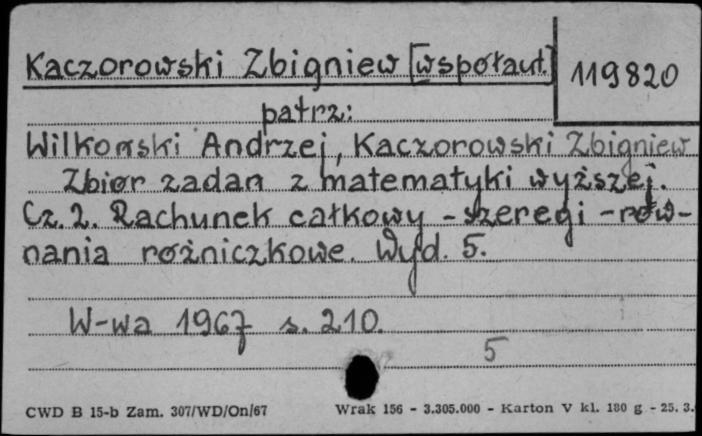 Kaczorowski Zbigniew [współaut.]
119820
patrz:
Wilkoński Andrzej, Kaczorowski Zbigniew
Zbiór zadań z matematyki wyższej.
Cz. 2. Rachunek całkowy - szeregi - rów-
nania różniczkowe. Wyd. 5.
W-wa 1967 s. 210.
5
CWD B 15-b Zam. 307/WD/On/67 Wrak 156 - 3.305.000 - Karton V kl. 180 g - 25. 3.